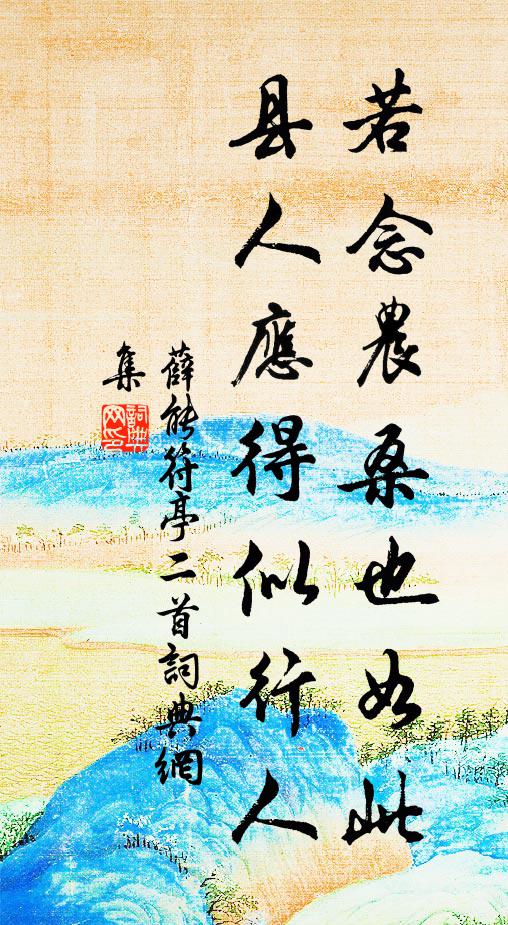 若念農桑也如此
县人應得似行人
薛能符亭二首詞典網
集
詞典
网印